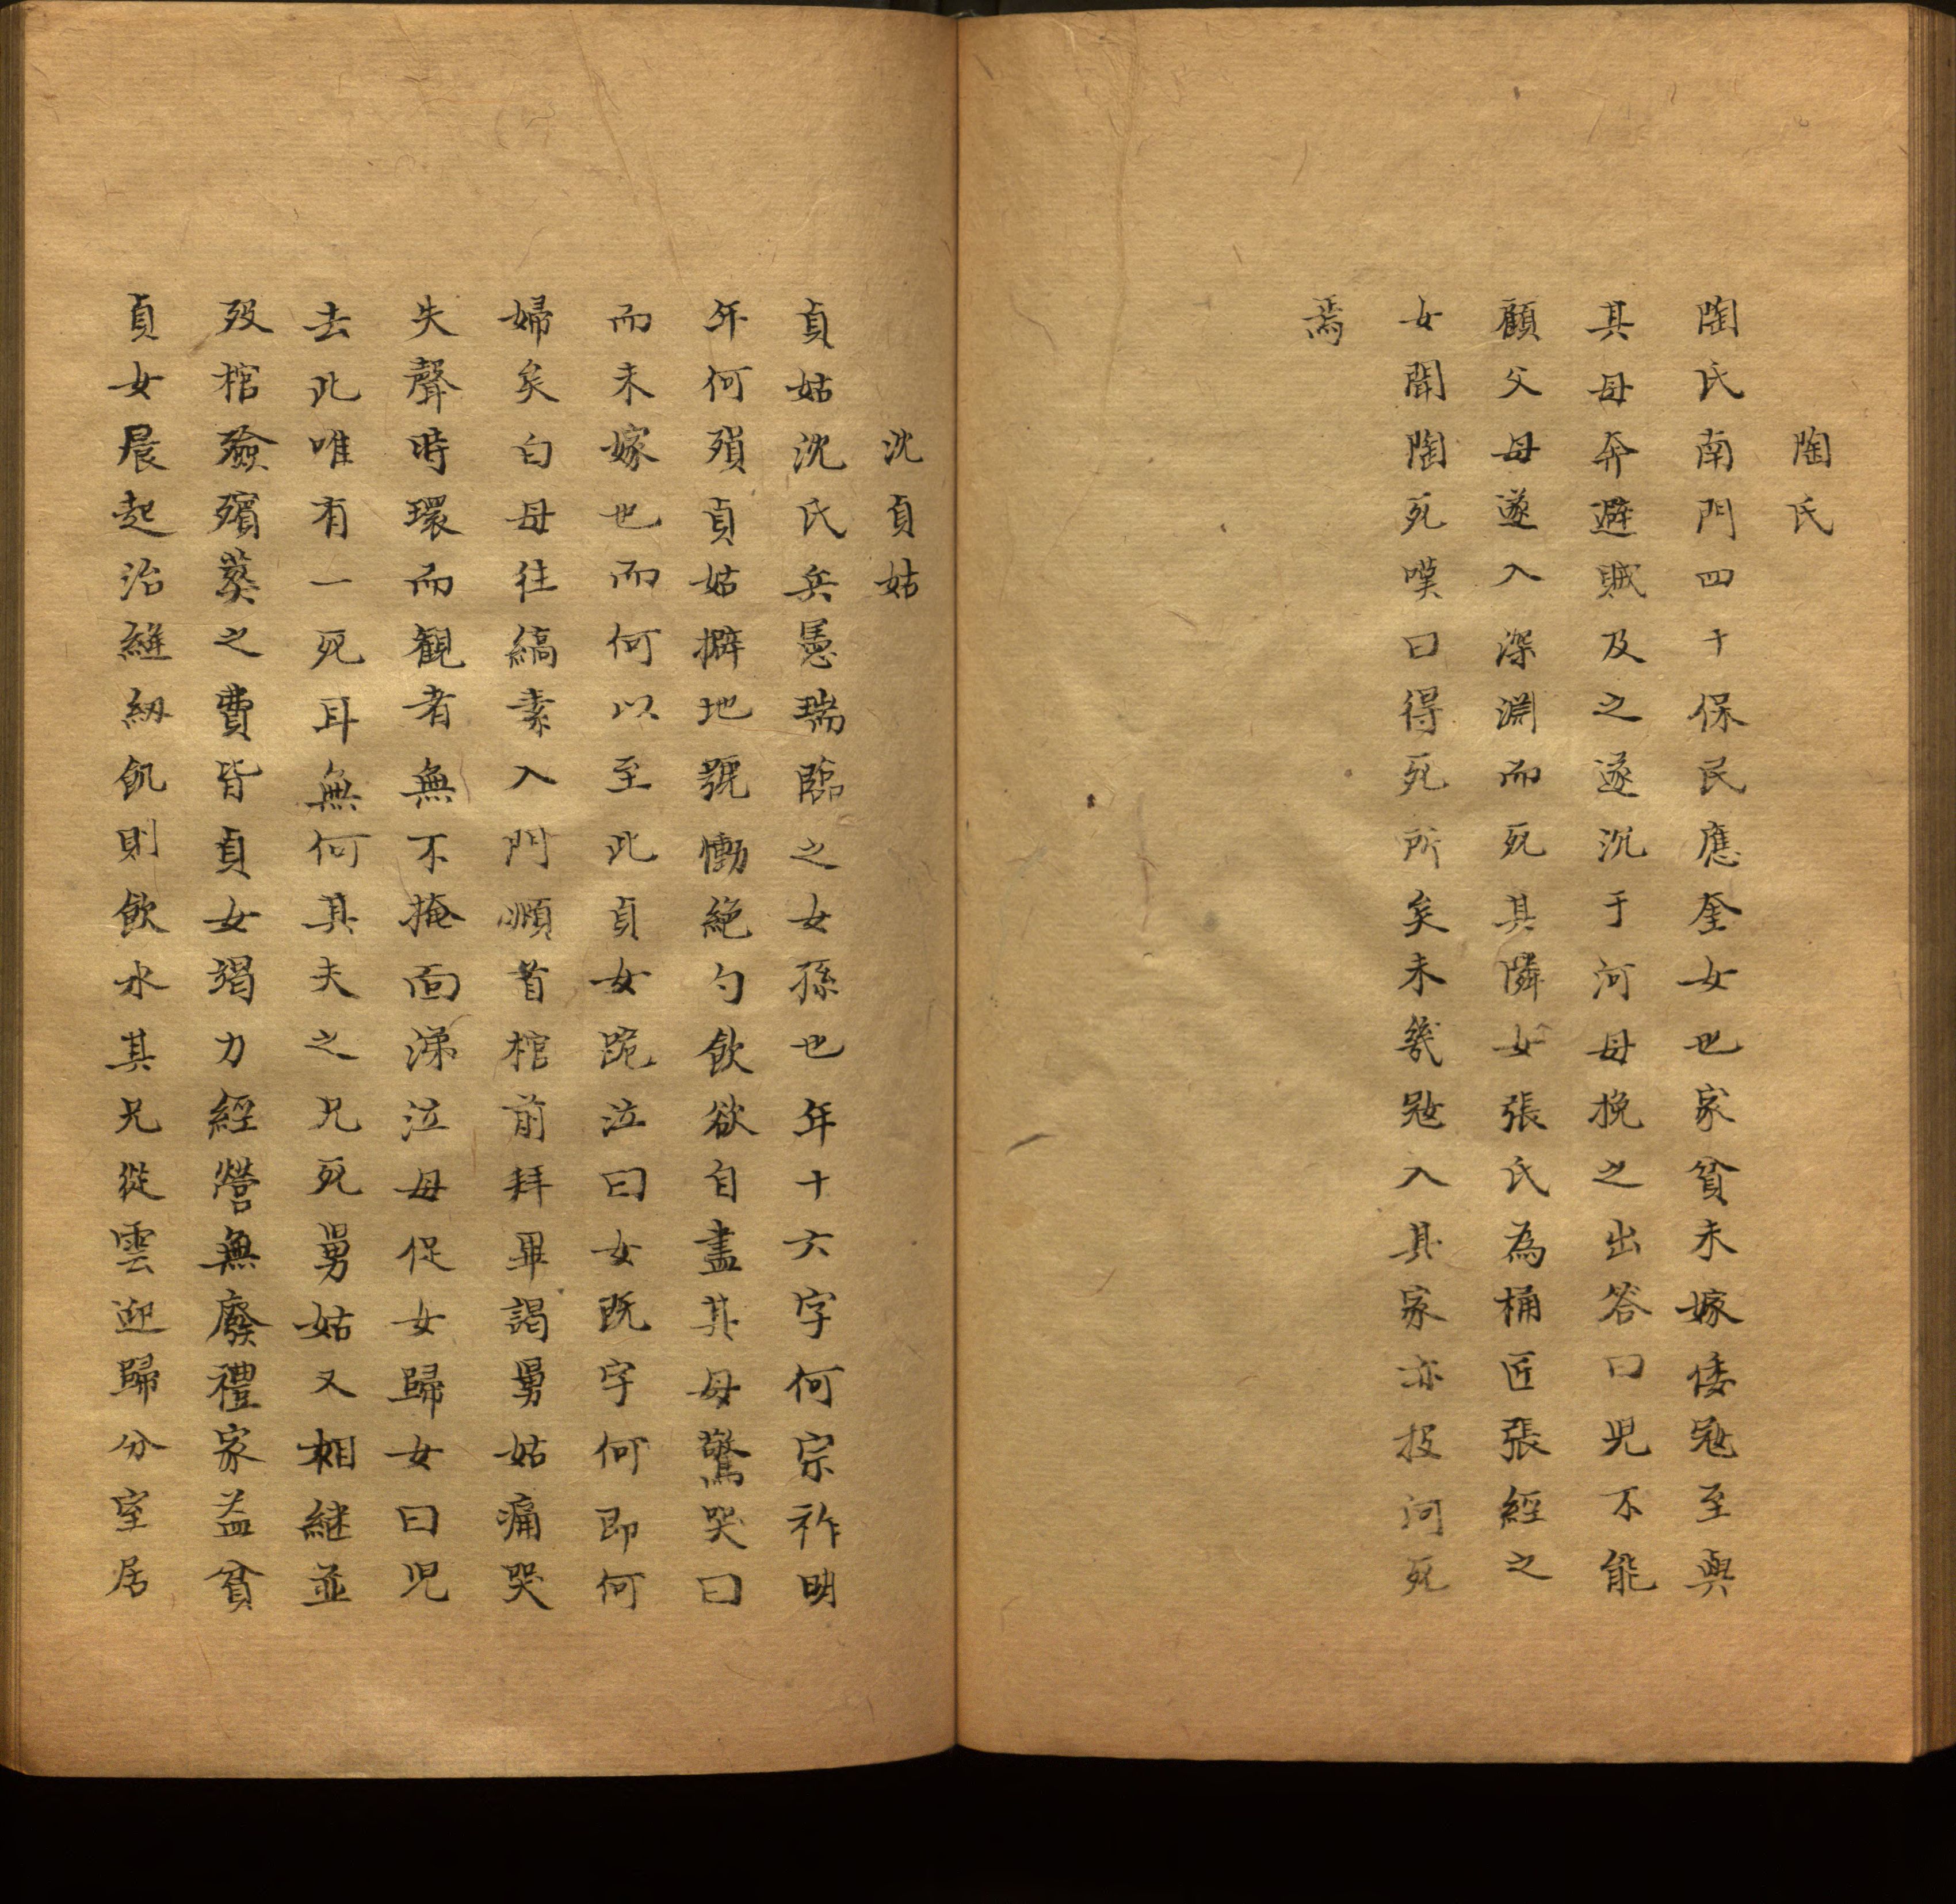 陶氏
陶氏南門四十保民應奎女也家貧未嫁倭寇至與
其母奔避賊及之遂沉于河母挽之出答曰児不能
顧父母遂入深淵而死其隣女張氏為桶匠張經之
女聞陶死嘆曰得死所矣未幾寇入其家亦投河死
焉
沈貞姑
貞姑沈氏兵憲瑞臨之女孫也年十六字何宗祚明
年何殞貞姑擗地號慟絶勺飲欲自盡其母驚哭曰
而未嫁也而何以至此貞女跪泣曰女既字何即何
婦矣白母往縞素入門順首棺前拜畢謁舅姑痛哭
失聲時環而観者無不掩面涕泣母促女歸女曰児
去此唯有一死耳無何其夫之兄死舅姑又相継並
歿棺殮殯葬之費皆貞女竭力經營無廢禮家益貧
貞女晨起治縫紉飢則飲水其兄從雲迎歸分室居